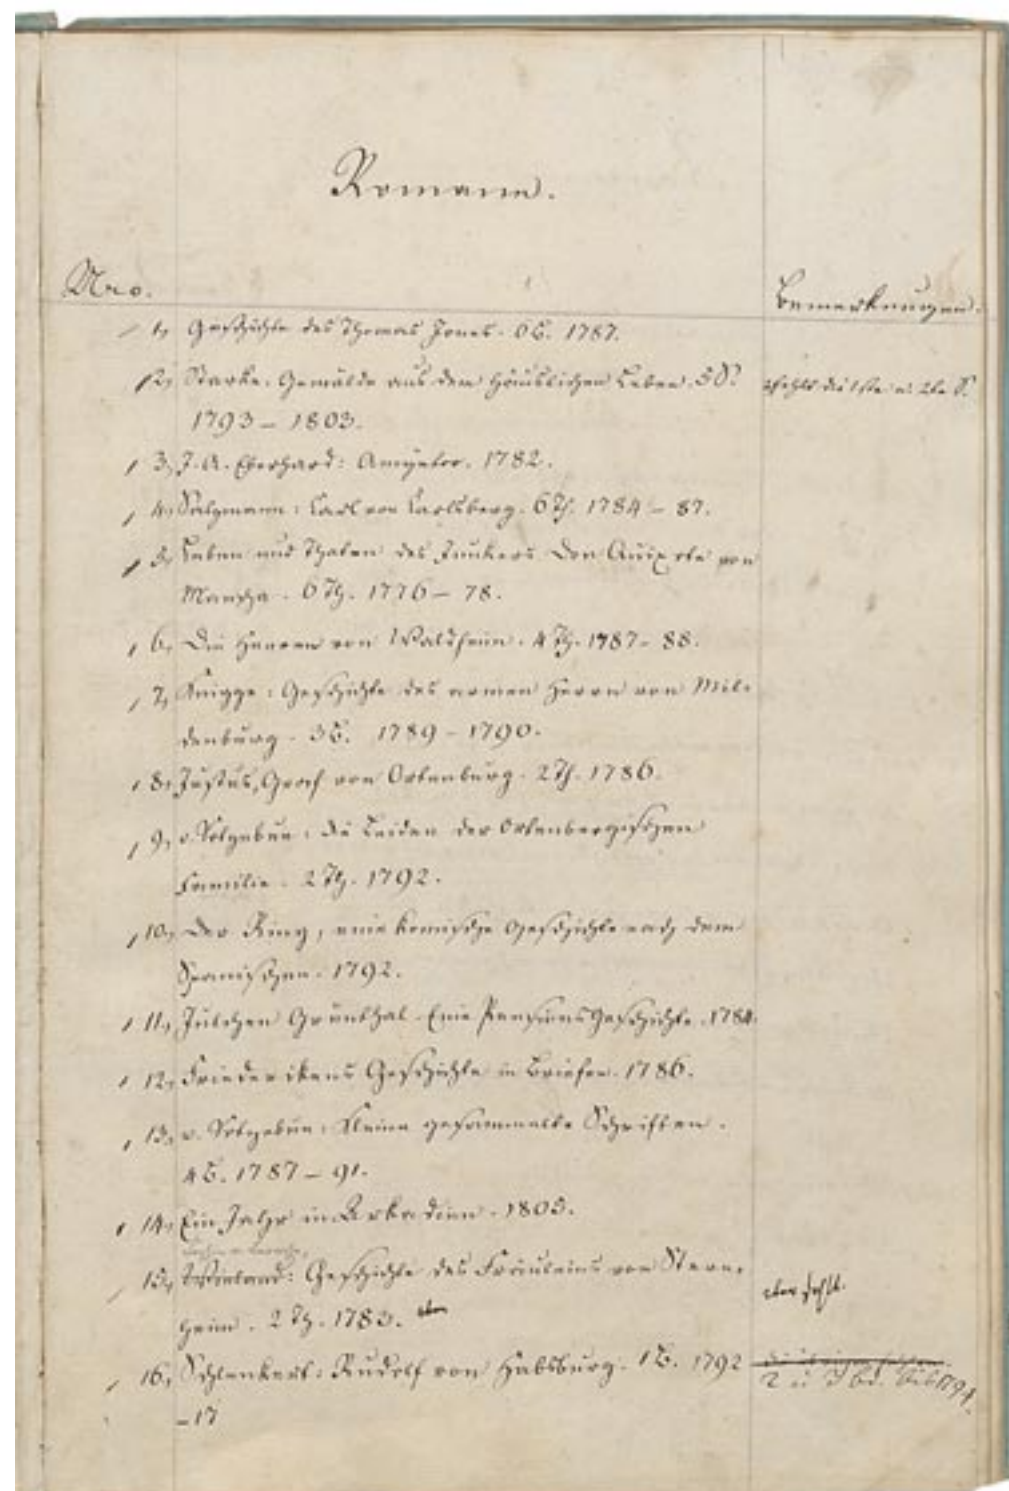 Romane.
Nro.
Bemerkungen.
1, Geschichte des Thomas Jones. 6 B. 1787.
2, Starke: Gemälde aus dem häuslichen Leben. 5 S. fehlt die 1ste u. 2te S.
1793 – 1803.
3, J. A. Eberhard: Amyntor. 1782.
4, Salzmann: Carl von Carlsberg. 6 Th. 1784 – 87.
5, Leben und Thaten des Junkers Don Quixote von
Mancha. 6 Th. 1776 – 78.
6, Die Herren von Waldheim. 4 Th. 1787 – 88.
7, Knigge: Geschichte des armen Herrn von Mil-
denburg. 3 B. 1789 – 1790.
8, Justus, Graf von Ortenburg. 2 Th. 1786.
9, v. Kotzebue: die Leiden der Ortenbergischen
Familie. 2 Th. 1792.
10, Der Ring, eine komische Geschichte nach dem
Spanischen. 1792.
11, Julchen Grünthal. Eine Pensionsgeschichte. 1784.
12, Friederikens Geschichte in Briefen. 1786.
13, v. Kotzebue: Kleine gesammelte Schriften.
4 B. 1787 – 91.
14, Ein Jahr in Arkadien. 1805.
15, Wieland: Geschichte des Fräuleins von Stern-
heim. 2 Th. 1783. 2ter fehlt.
16, Schlenkert: Rudolf von Habsburg. 1 B. 1792
2 u. 3 bd. bis 1794.
– 17